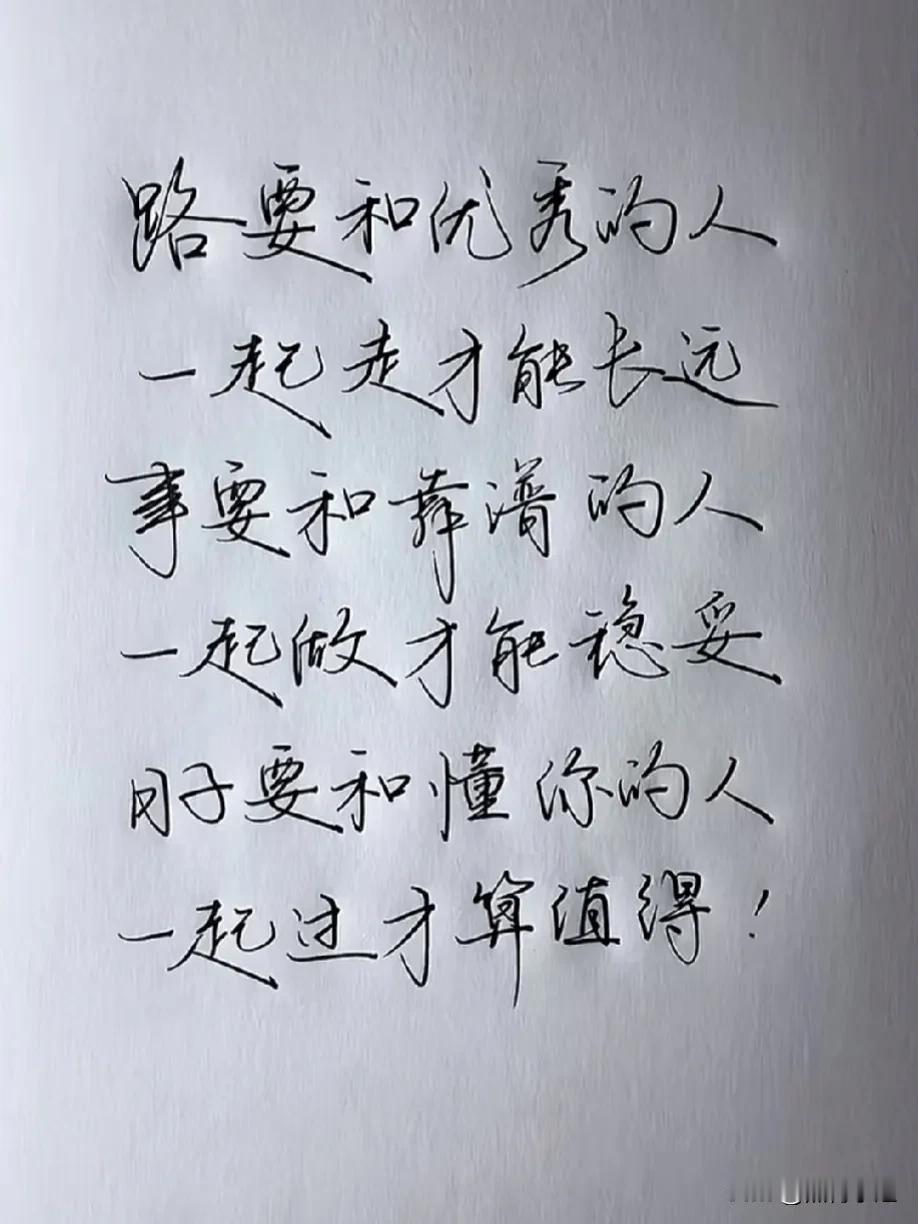 路要和优秀的人
一起走才能长远
事要和靠谱的人
一起做才能稳妥
日子要和懂你的人
一起过才算值得!